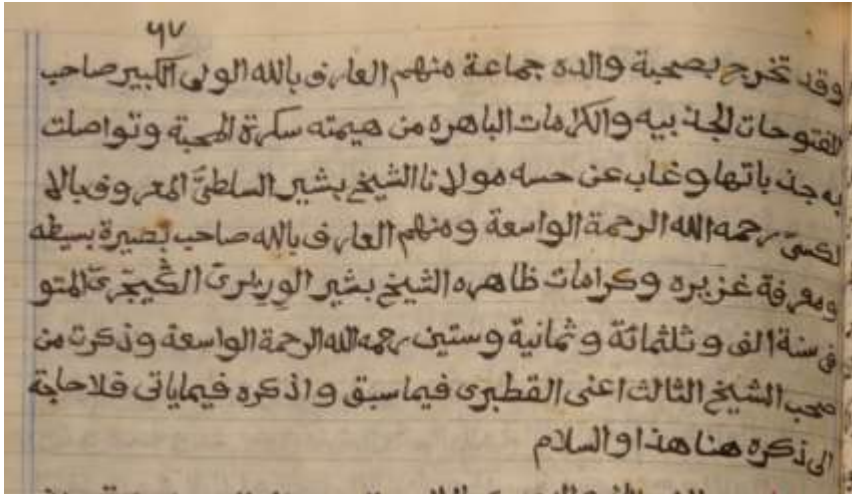 ٦٧
وقد تخرج بصحبة والده جماعة منهم العارف بالله الولى الكبير صاحب
الفتوحات الجذبيه والكرامات الباهره من هيمته سكرة المحبة وتواصلت
به جذباتها وغاب عن حسه مولانا الشيخ بشير السلطىّ المعروف بالا
لكسىّ رحمه الله الرحمة الواسعة ومنهم العارف بالله صاحب بصيرة بسيطه
ومعرفة غزيره وكرامات ظاهره الشيخ بشير الوريرىّ الكيجرىّ المتو
فى سنة الف وثلثمائة وثمانية وستين رحمه الله الرحمة الواسعة وذكرت من
صحب الشيخ الثالث اعنى القطبرى فيما سبق واذكره فيما ياتى فلا حاجة
الى ذكره هنا هذا والسلام